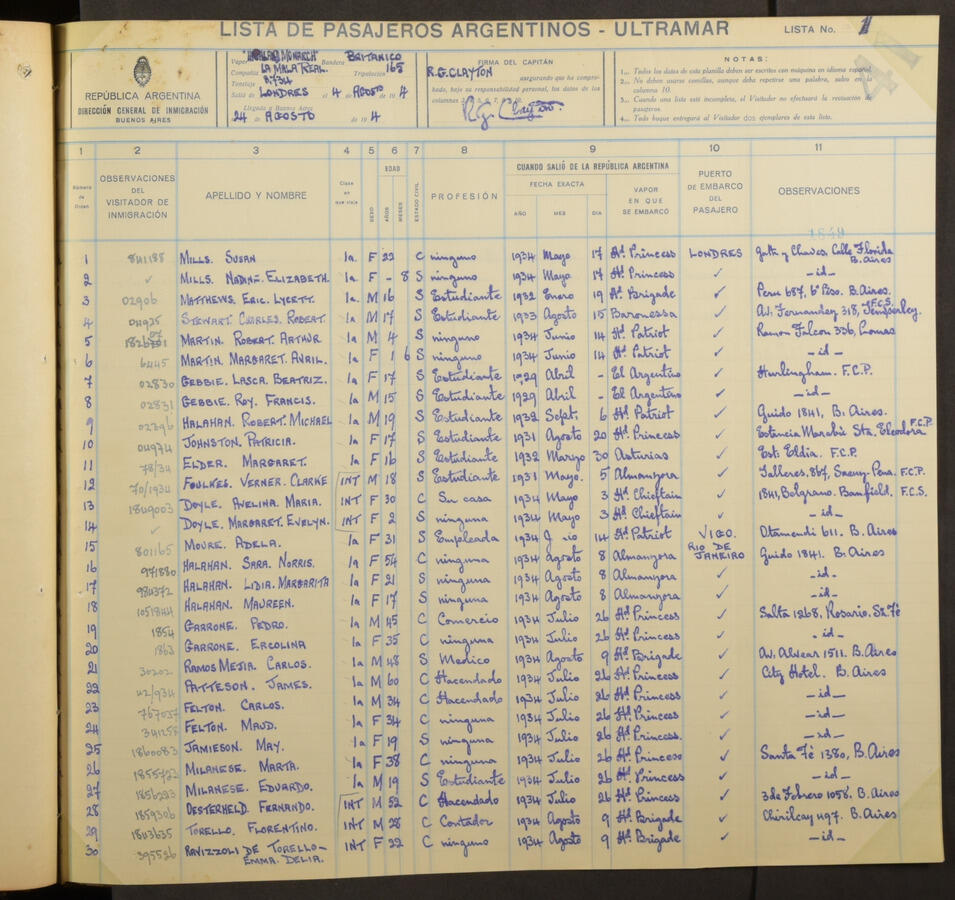 LISTA DE PASAJEROS ARGENTINOS - ULTRAMAR
LISTA No. 1
REPÚBLICA ARGENTINA
DIRECCIÓN GENERAL DE INMIGRACIÓN
BUENOS AIRES
Vapor "HIGHLAND MONARCH" Bandera BRITANICO
Compañía LA MALA REAL. Tripulación 168
Tonelaje 8734
Salió de LONDRES el 4 AGOSTO de 19 4
Llegada a Buenos Aires
24 de AGOSTO de 19 4
FIRMA DEL CAPITÁN
R.G. CLAYTON asegurando que ha comprobado, bajo su responsabilidad personal, los datos de las columnas
R.G. Clayton
NOTAS:
1... Todos los datos de esta planilla deben ser escritos con máquina en idioma español.
2... No deben usarse comillas, aunque deba repetirse una palabra, salvo en la columna 10.
3... Cuando una lista esté incompleta, el Visitador no efectuará la recusación de pasajeros.
4... Todo buque entregará al Visitador dos ejemplares de esta lista.
1 2 3 4 5 6 7 8 9 10 11
Número de Orden
OBSERVACIONES DEL VISITADOR DE INMIGRACIÓN
APELLIDO Y NOMBRE
Clase en que viaja
SEXO
EDAD
AÑOS
MESES
ESTADO CIVIL
PROFESIÓN
CUANDO SALIÓ DE LA REPÚBLICA ARGENTINA
FECHA EXACTA
AÑO MES DIA
VAPOR EN QUE SE EMBARCÓ
PUERTO DE EMBARCO DEL PASAJERO
OBSERVACIONES
1849
1 841188 MILLS. SUSAN 1a. F 22 C ninguno 1934 Mayo 17 Hd. Princess LONDRES Gath y Chaves. Calle Florida B. Aires
2 ✓ MILLS. NADINE. ELIZABETH. 1a. F - 8 S ninguno 1934 Mayo 17 Hd. Princess ✓ -id-
3 02906 MATTHEWS. ERIC. LYCETT. 1a. M 16 S Estudiante 1932 Enero 19 Hd. Brigade ✓ Peru 687, 6º Piso. B. Aires.
4 04925 STEWART. CHARLES. ROBERT. 1a M 17 S Estudiante 1933 Agosto 15 Baronessa ✓ Av. Fernandez 318, Temperley. F.C.S.
5 MARTIN. ROBERT. ARTHUR 1a M 4 S ninguno 1934 Junio 14 Hd. Patriot ✓ Ramon Falcon 336, Lomas
6 6445 MARTIN. MARGARET. AVRIL. 1a F 1 6 S ninguno 1934 Junio 14 Hd. Patriot ✓ -id-
7 02830 GEBBIE. LASCA. BEATRIZ. 1a F 17 S Estudiante 1929 Abril - El Argentino ✓ Hurlingham. F.C.P.
8 02831 GEBBIE. ROY. FRANCIS. 1a M 15 S Estudiante 1929 Abril - El Argentino ✓ -id-
9 02896 HALAHAN. ROBERT. MICHAEL 1a M 19 S Estudiante 1932 Sept. 6 Hd. Patriot ✓ Guido 1841, B. Aires.
10 04974 JOHNSTON. PATRICIA. 1a F 17 S Estudiante 1931 Agosto 20 Hd. Princess ✓ Estancia Marabú Sta. Eleodora F.C.P.
11 78/34 ELDER. MARGARET. 1a F 16 S Estudiante 1932 Marzo 30 Asturias ✓ Est. Eldia. F.C.P.
12 70/1934 FOULKES. VERNER. CLARKE INT M 18 S Estudiante 1931 Mayo. 5 Almanzora ✓ Talleres. 867, Saenz-Pena. F.C.P.
13 1849003 DOYLE. AVELINA. MARIA. INT F 30 C Su casa 1934 Mayo 3 Hd. Chieftain ✓ 1841, Belgrano. Banfield. F.C.S.
14 ✓ DOYLE. MARGARET. EVELYN. INT F 2 S ninguna 1934 Mayo 3 Hd. Chieftain ✓ -id-
15 801165 MOURE. ADELA. 1a F 31 S Empleada 1934 14 Hd. Patriot VIGO. Otamendi 611. B. Aires
16 971880 HALAHAN. SARA. NORRIS. 1a F 54 C ninguna 1934 Agosto 8 Almanzora RIO DE JANEIRO Guido 1841. B. Aires
17 984372 HALAHAN. LIDIA. MARGARITA 1a F 21 S ninguna 1934 Agosto 8 Almanzora ✓ -id-
18 1051844 HALAHAN. MAUREEN. 1a F 17 S ninguna 1934 Agosto 8 Almanzora ✓ -id-
19 1854 GARRONE. PEDRO. 1a M 45 C Comercio 1934 Julio 26 Hd. Princess ✓ Salta 1268, Rosario. Sta Fé
20 1863 GARRONE. ERCOLINA 1a F 35 C ninguna 1934 Julio 26 Hd. Princess ✓ -id-
21 30202 RAMOS MEJIA. CARLOS. 1a M 48 S Medico 1934 Agosto 9 Hd. Brigade ✓ Av. Alvear 1511. B. Aires
22 42/934 PATTESON. JAMES. 1a M 60 C Hacendado 1934 Julio 26 Hd. Princess ✓ City Hotel. B. Aires
23 767057 FELTON. CARLOS. 1a M 34 C Hacendado 1934 Julio 26 Hd. Princess ✓ -id-
24 341258 FELTON. MAUD. 1a F 34 C ninguna 1934 Julio 26 Hd. Princess ✓ -id-
25 1860083 JAMIESON. MAY. 1a F 19 S ninguna 1934 Julio 26 Hd. Princess. ✓ -id-
26 1855722 MILANESE. MARTA. 1a F 38 C ninguna 1934 Julio 26 Hd. Princess ✓ Santa Fé 1380, B. Aires
27 1856223 MILANESE. EDUARDO. 1a M 19 S Estudiante 1934 Julio 26 Hd. Princess ✓ -id-
28 1859306 OESTERHELD. FERNANDO. INT M 52 C Hacendado 1934 Julio 26 Hd. Princess ✓ 3 de Febrero 1058. B. Aires
29 1843635 TORELLO. FLORENTINO. INT M 28 C Contador 1934 Agosto 9 Hd. Brigade ✓ Chirilcay 497. B. Aires
30 395526 RAVIZZOLI DE TORELLO- EMMA. DELIA. INT F 22 C ninguno 1934 Agosto 9 Hd. Brigade ✓ -id-